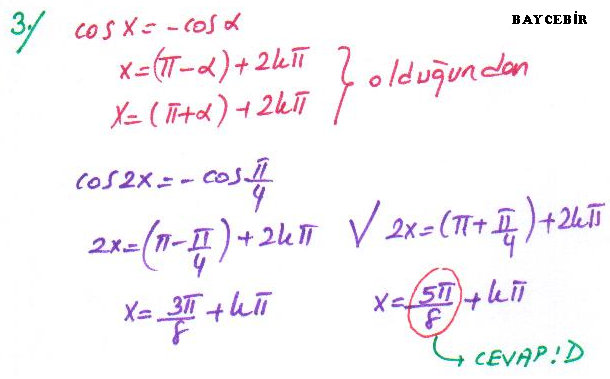 BAY CEBİR
3-/ cos x = -cos α
x = (π-α) + 2kπ
x = (π+α) + 2kπ } olduğundan
cos2x = - cos π/4
2x = (π - π/4) + 2kπ V 2x = (π + π/4) + 2kπ
x = 3π/8 + kπ x = 5π/8 + kπ
→ CEVAP: D